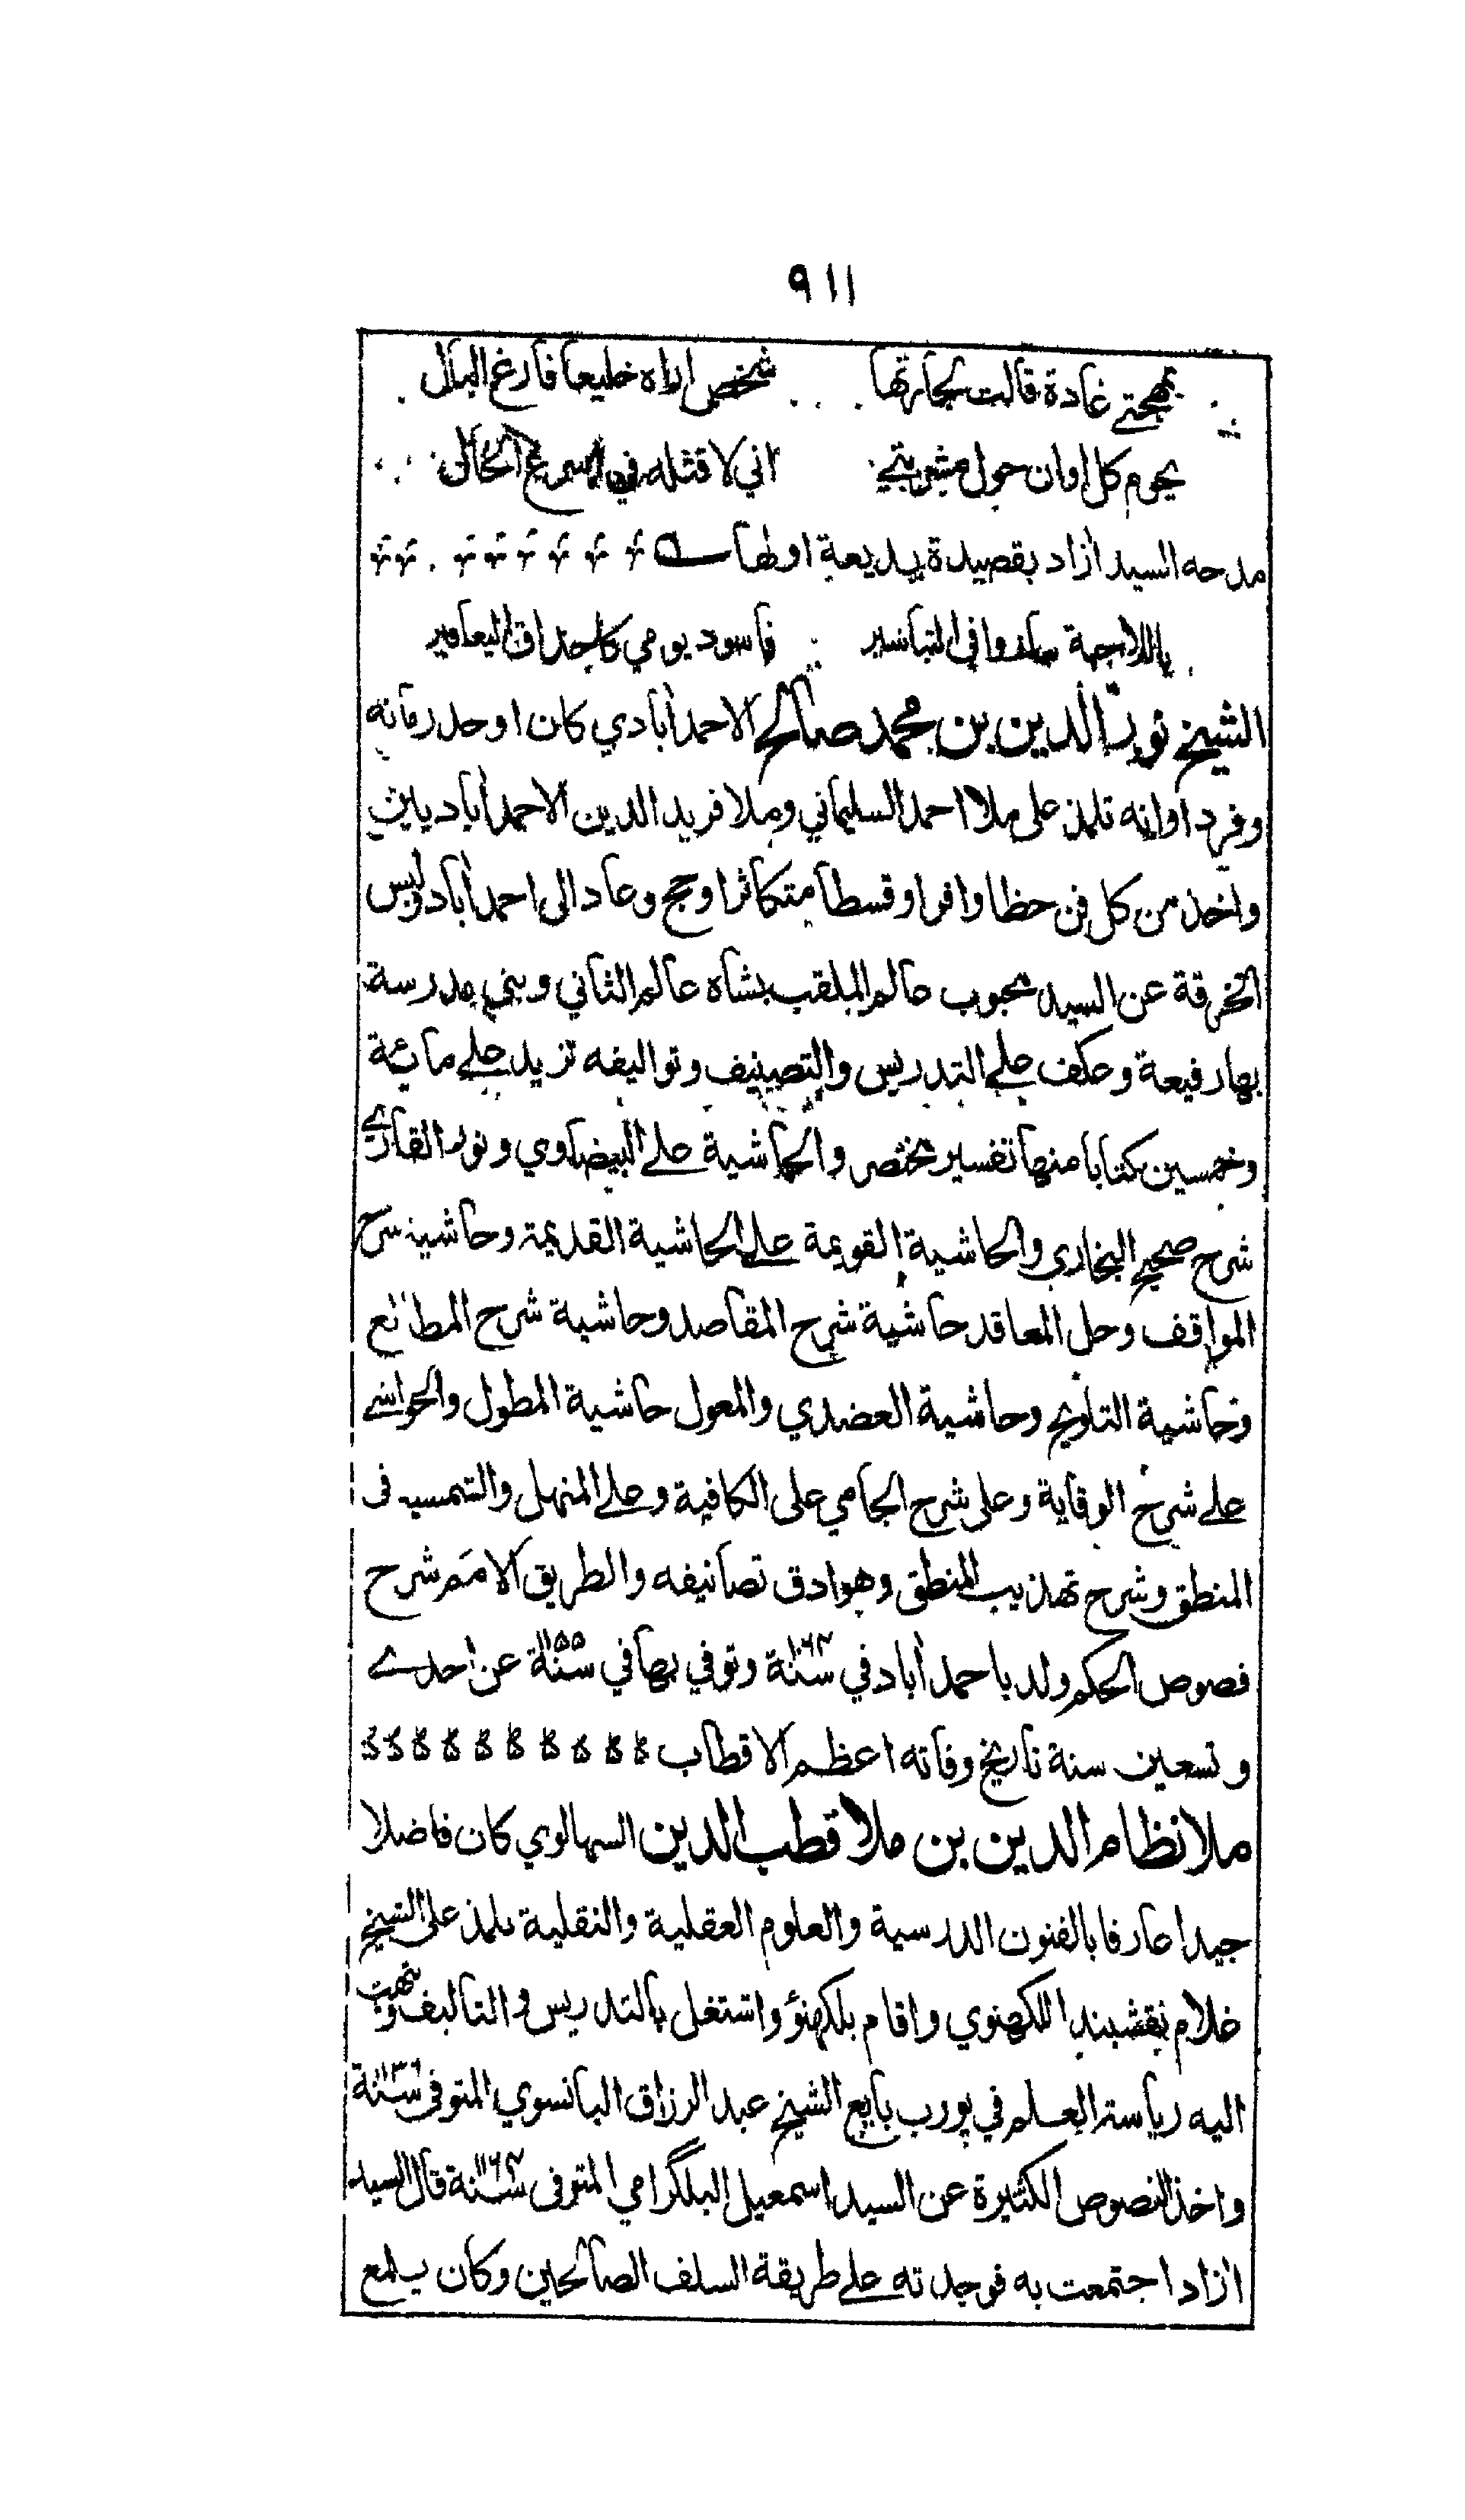 ٩١١
بمهجتي غادة قالت لجارتها شخص اراه خليعا فارغ البال
يحوم كل اوان حول مشربتي اني لاقتله في اسرع الحال
مدحه السيد ازاد بقصيدة بديعة اولها
يا للاحبة في التباشير فاسود يومي كاحداق اليعافير
الشيخ نور الدين بن محمد صالح الاحمدأبادي كان اوحد زمانه
وفرد اوانه تلمذ على ملا احمد السليماني وملا فريد الدين الاحمدأباديين
واخذ من كل فن حظا وافرا وقسطا متكاثرا وحج وعاد الى احمدأباد ولبس
الخرقة عن السيد محبوب عالم الملقب بشاه عالم الثاني وبنى مدرسة
بها رفيعة وعكف على التدريس والتصنيف وتواليفه تزيد على مائة
وخمسين كتابا منها تفسير مختصر والحاشية على البيضاوي ونور القاري
شرح صحيح البخاري والحاشية القويمة على الحاشية القديمة وحاشية شرح
المواقف وحل المعاقد حاشية شرح المقاصد وحاشية شرح المطالع
وحاشية التلويح وحاشية العضدي والمعول حاشية المطول والحواشي
على شرح الوقاية وعلى شرح الجامي على الكافية وعلى المنهل والشمسيه فى
المنطق وشرح تهذيب المنطق وهو ادق تصانيفه والطريق الامم شرح
فصوص الحكم ولد باحمدأباد في سنة ١٠٦٣ وتوفي بها في سنة ١١٥٥ عن احدى
وتسعين سنة تاريخ وفاته اعظم الاقطاب
ملا نظام الدين بن ملا قطب الدين السهالوي كان فاضلا
جيدا عارفا بالفنون الدرسية والعلوم العقلية والنقلية تلمذ على الشيخ
غلام نقشبند اللكهنوي واقام بلكهنؤ واشتغل بالتدريس والتاليف وانتهت
اليه رياسة العلم في پورب بايع الشيخ عبد الرزاق البانسوي المتوفى سنة ١١٣٦
واخذ النصوص الكثيرة عن السيد اسمعيل البلگرامي المتوفى سنة ١١٦٤ قال السيد
ازاد اجتمعت به فوجدته على طريقة السلف الصالحين وكان يلمع